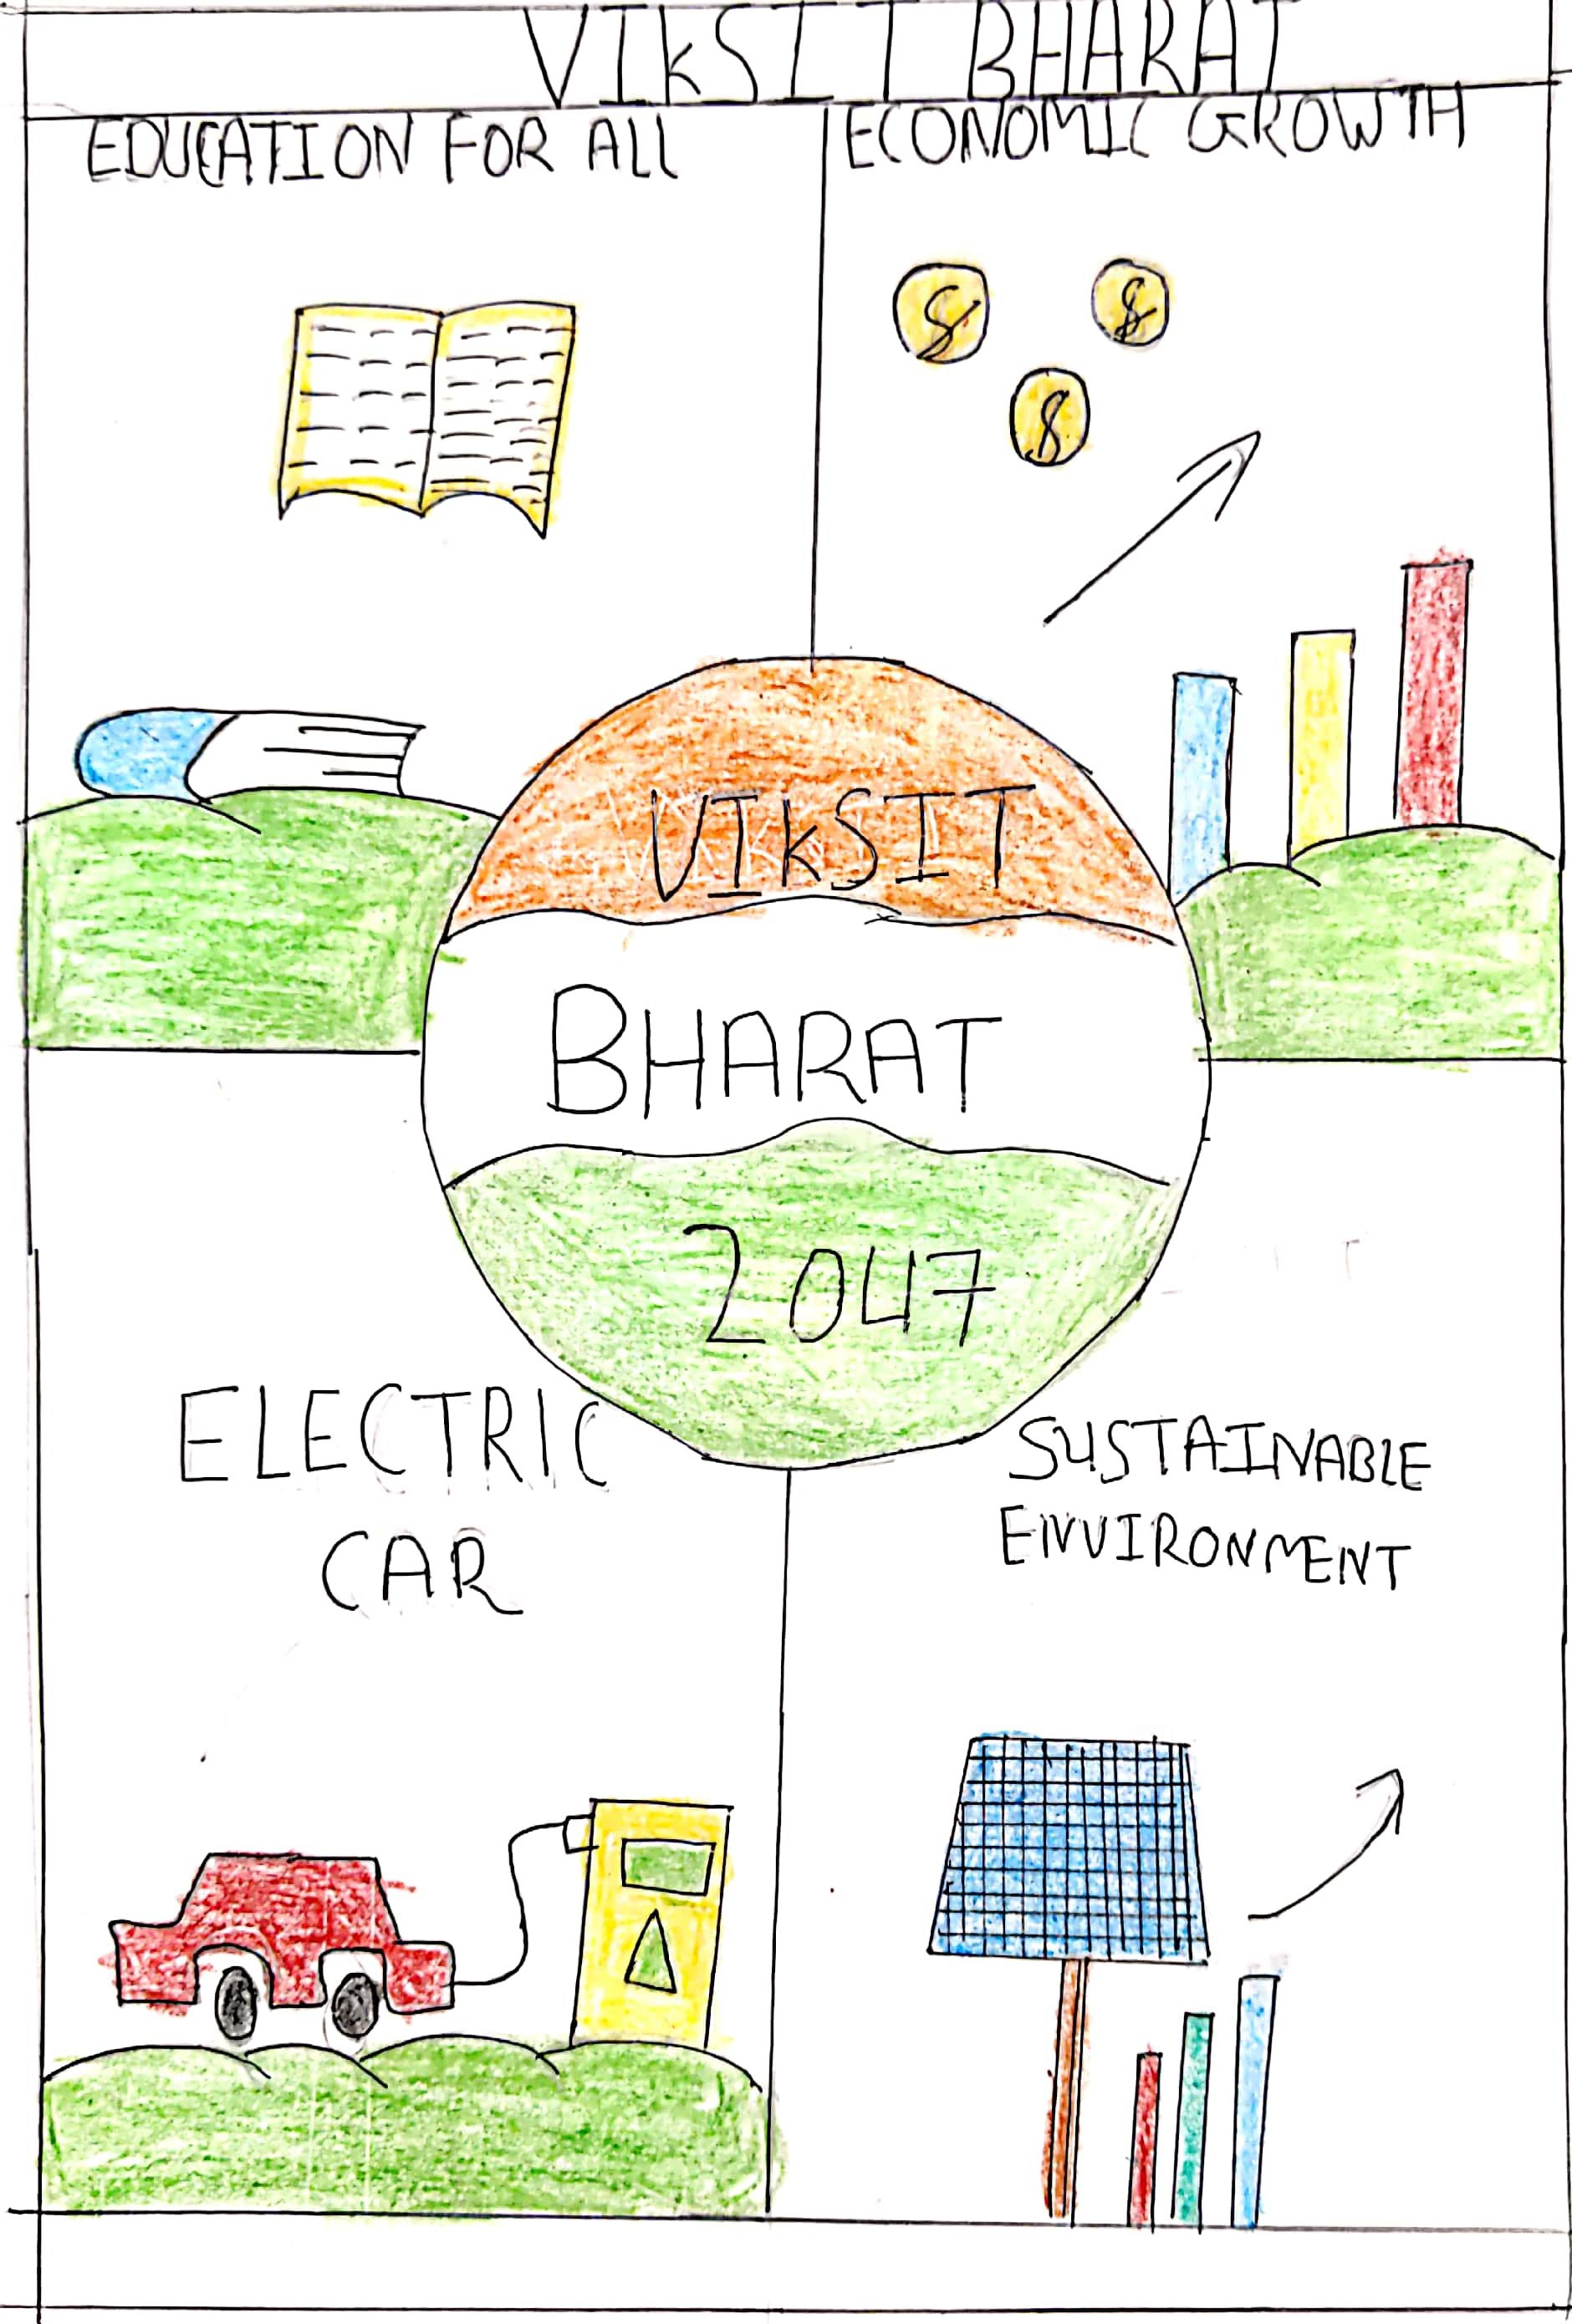 VIkSIT BHARAT
EDUCATION FOR ALL
ECONOMIC GROWTH
$
$
$
VIkSIT
BHARAT
2047
ELECTRIC
CAR
SUSTAINABLE
ENVIRONMENT